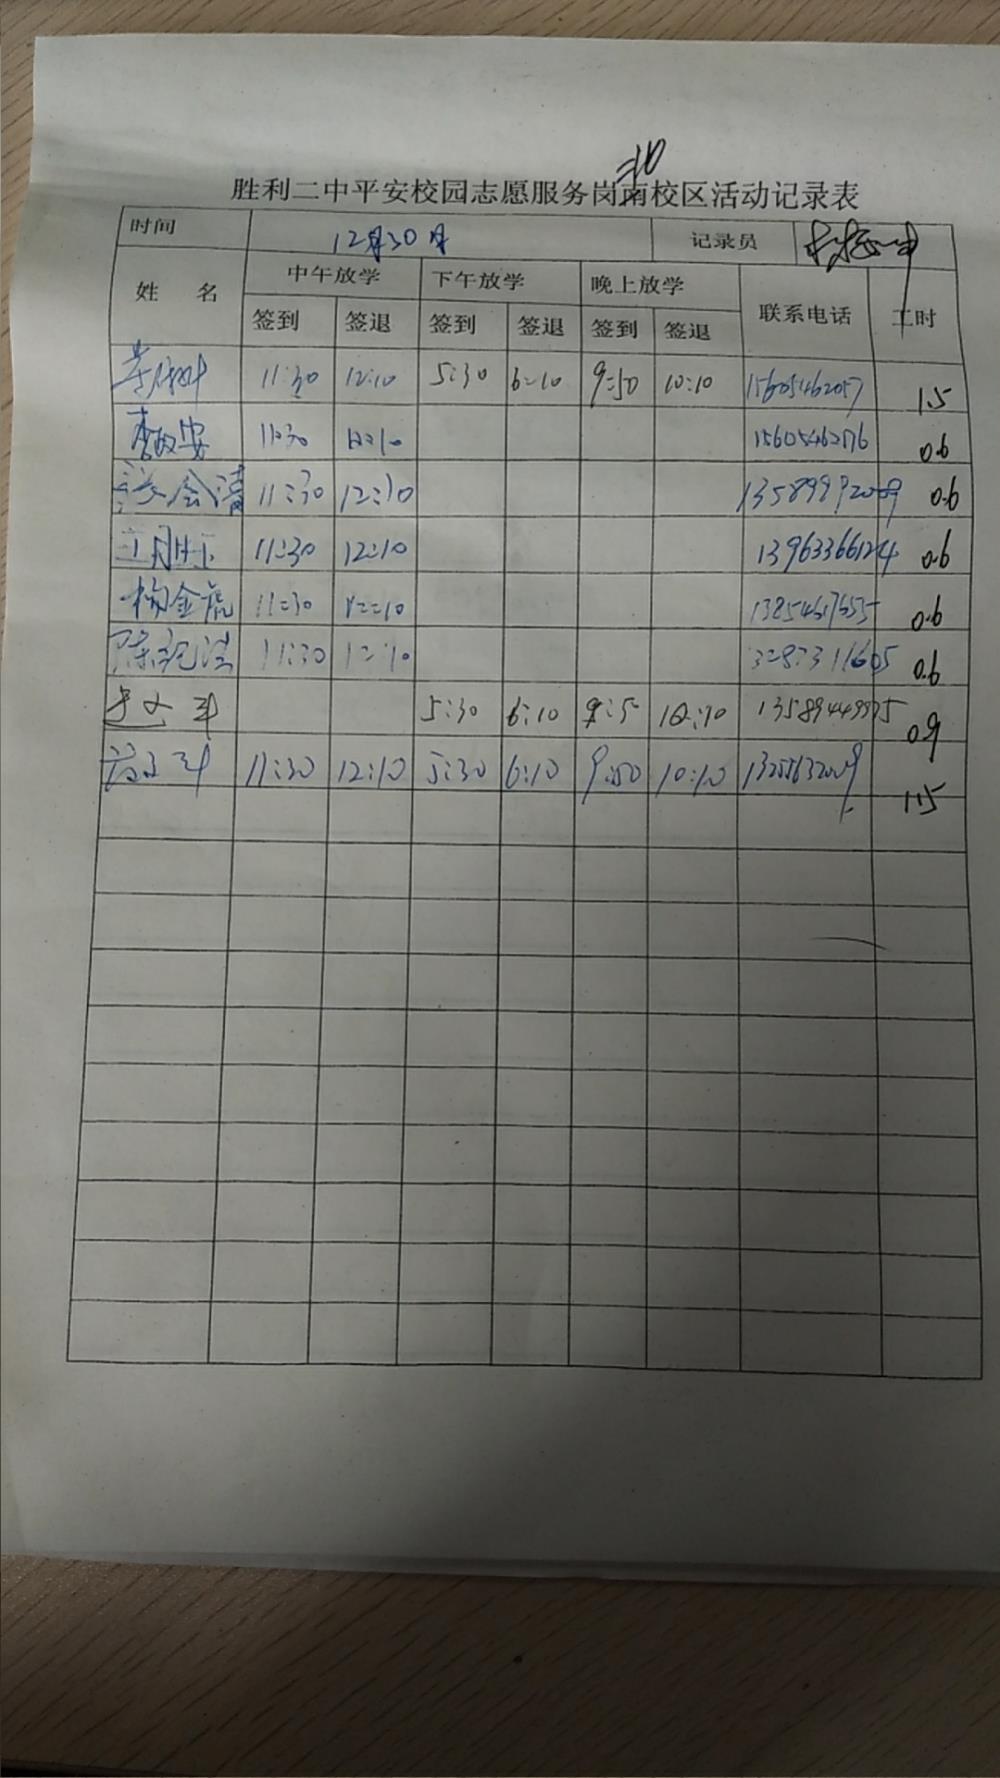 北
胜利二中平安校园志愿服务岗南校区活动记录表
时间 12月30日 记录员
姓 名 中午放学 下午放学 晚上放学 联系电话 工时
签到 签退 签到 签退 签到 签退
11:30 12:10 5:30 6:10 9:50 10:10 15605462057 1.5
李政安 11:30 12:10 15605462176 0.6
张会清 11:30 12:10 13589992009 0.6
11:30 12:10 13963366124 0.6
杨金虎 11:30 12:10 13854617655 0.6
陈纪法 11:30 12:10 0.6
5:30 6:10 10:10 13589449975 0.9
11:30 12:10 5:30 6:10 9:50 10:10 13255632009
1.5